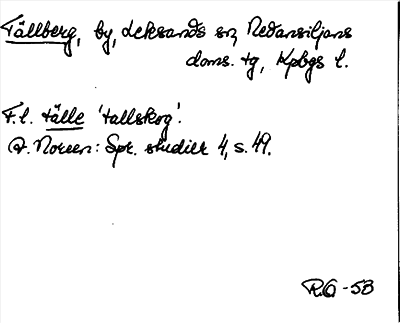 Tällberg, by, Leksands sn, Nedansiljans
doms. tg, Kpbgs l.
F.l. tälle 'tallskog'.
A. Noreen: Spr. studier 4, s. 49.
R.O - 53